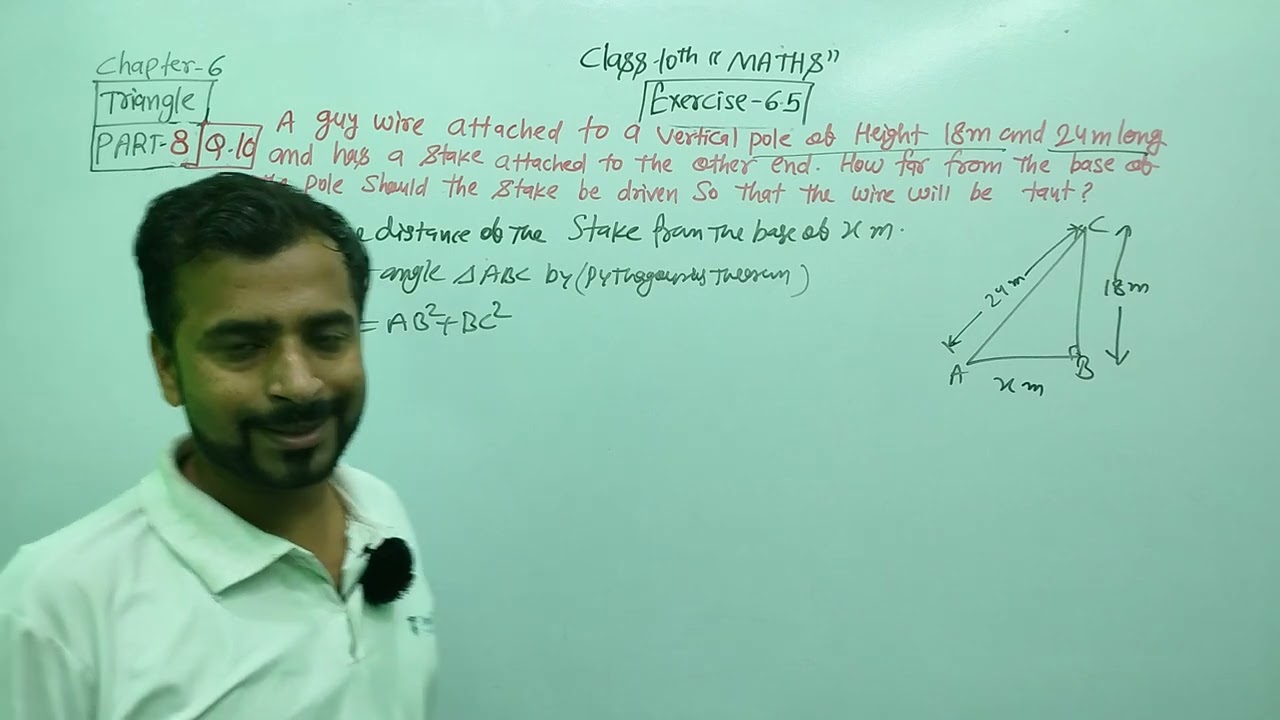 Chapter-6
Triangle
PART-8 Q.10
Class-10th "MATHS"
Exercise-6.5
A guy wire attached to a vertical pole of Height 18m and 24m long
and has a stake attached to the other end. How far from the base of
pole should the stake be driven so that the wire will be taut?
distance of the Stake from the base of x m.
angle △ABC by (Pythagoras Theorem)
= AB²+BC²
C
24m
18m
A
B
x m